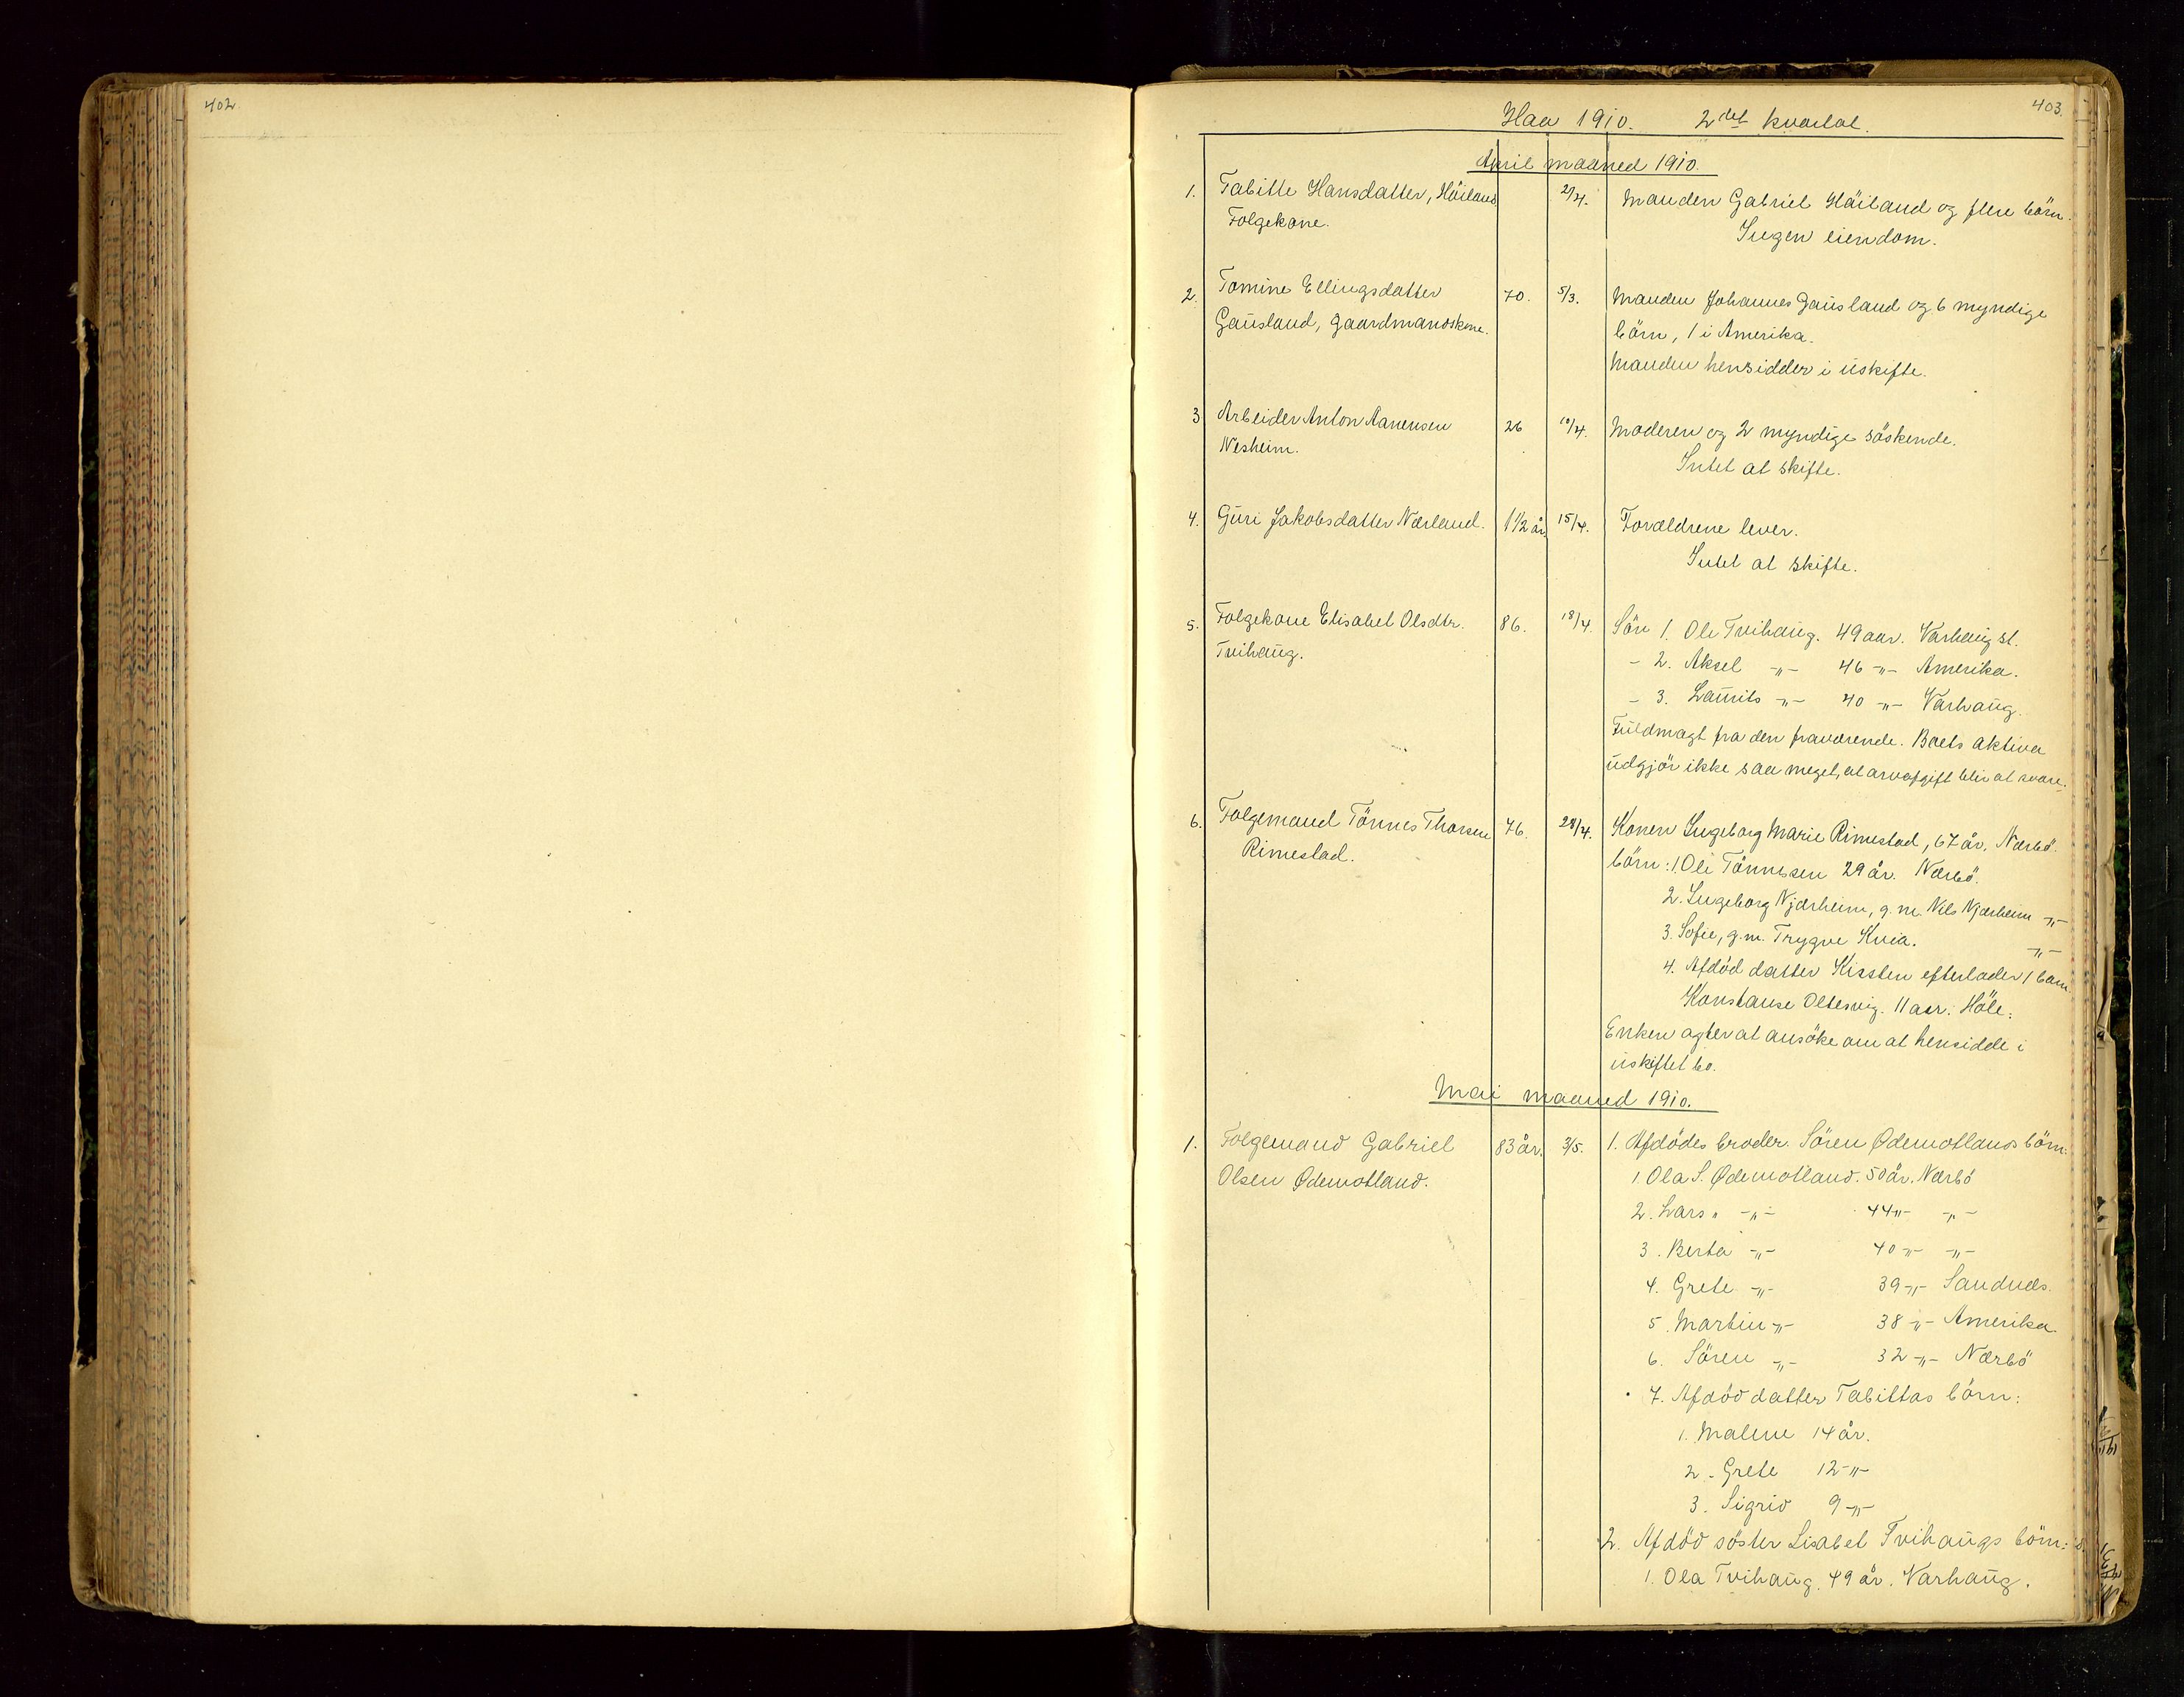 402.
403.
Haa 1910. 2det kvartal.
April maaned 1910.
1. Tabitte Hansdatter, Höiland 2/4. Manden Gabriel Häiland og flere börn.
Folgekone. Ingen eiendom.
2. Tomine Ellingsdatter 70. 5/3. Manden Johannes Gausland og 6 myndige
Gausland, gaardmandskone. börn, 1 i Amerika.
Manden hensidder i uskifte.
3 Arbeider Anton Aanensen 26 10/4. Moderen og 2 myndige söskende.
Nesheim. Intet at skifte.
4. Guri Jakobsdatter Nærland. 1 1/2 år 15/4. Forældrene lever.
Intet at skifte.
5. Folgekone Elisabet Olsdtr. 86. 18/4. Sön 1. Ole Tvihaug. 49 aar. Varhaug st.
Tvihaug. - 2. Aksel -"- 46 -"- Amerika.
- 3. Laurits -"- 40 -"- Varhaug.
Fuldmagt fra den fraværende. Boets aktiva
udgjör ikke saa meget, at arveafgift blir at svare.
6. Folgemand Tönnes Thorsen 76. 28/4. Konen Ingeborg Marie Rimestad, 67 år. Nærbö.
Rimestad. börn: 1. Ole Tönnesen 29 år. Nærbö.
2. Ingeborg Njærheim, g.m. Nils Njærheim -"-
3. Sofie, g.m. Trygve Kvia. -"-
4. Afdöd datter Kirsten efterlader 1 barn
Konstanse Oltesvig. 11 aar. Höle.
Enken agter at ansöke om at hensidde i
uskiftet bo.
Mai maaned 1910.
1. Folgemand Gabriel 83 år. 3/5. 1. Afdödes broder. Sören Ødemotlands börn:
Olsen Ødemotland. 1. Ola S. Ødemotland. 50 år. Nærbö
2. Lars " -"- 44 -"- -"-
3. Berta -"- 40 -"- -"-
4. Grete -"- 39 -"- Sandnes.
5. Martin -"- 38 -"- Amerika
6. Sören -"- 32 -"- Nærbö
7. Afdöd datter Tabittas börn:
1. Malene 14 år.
2. Grete 12 -"-
3. Sigrid 9 -"-
2. Afdöd söster Lisabet Tvihaugs börn:
1. Ola Tvihaug. 49 år. Varhaug.